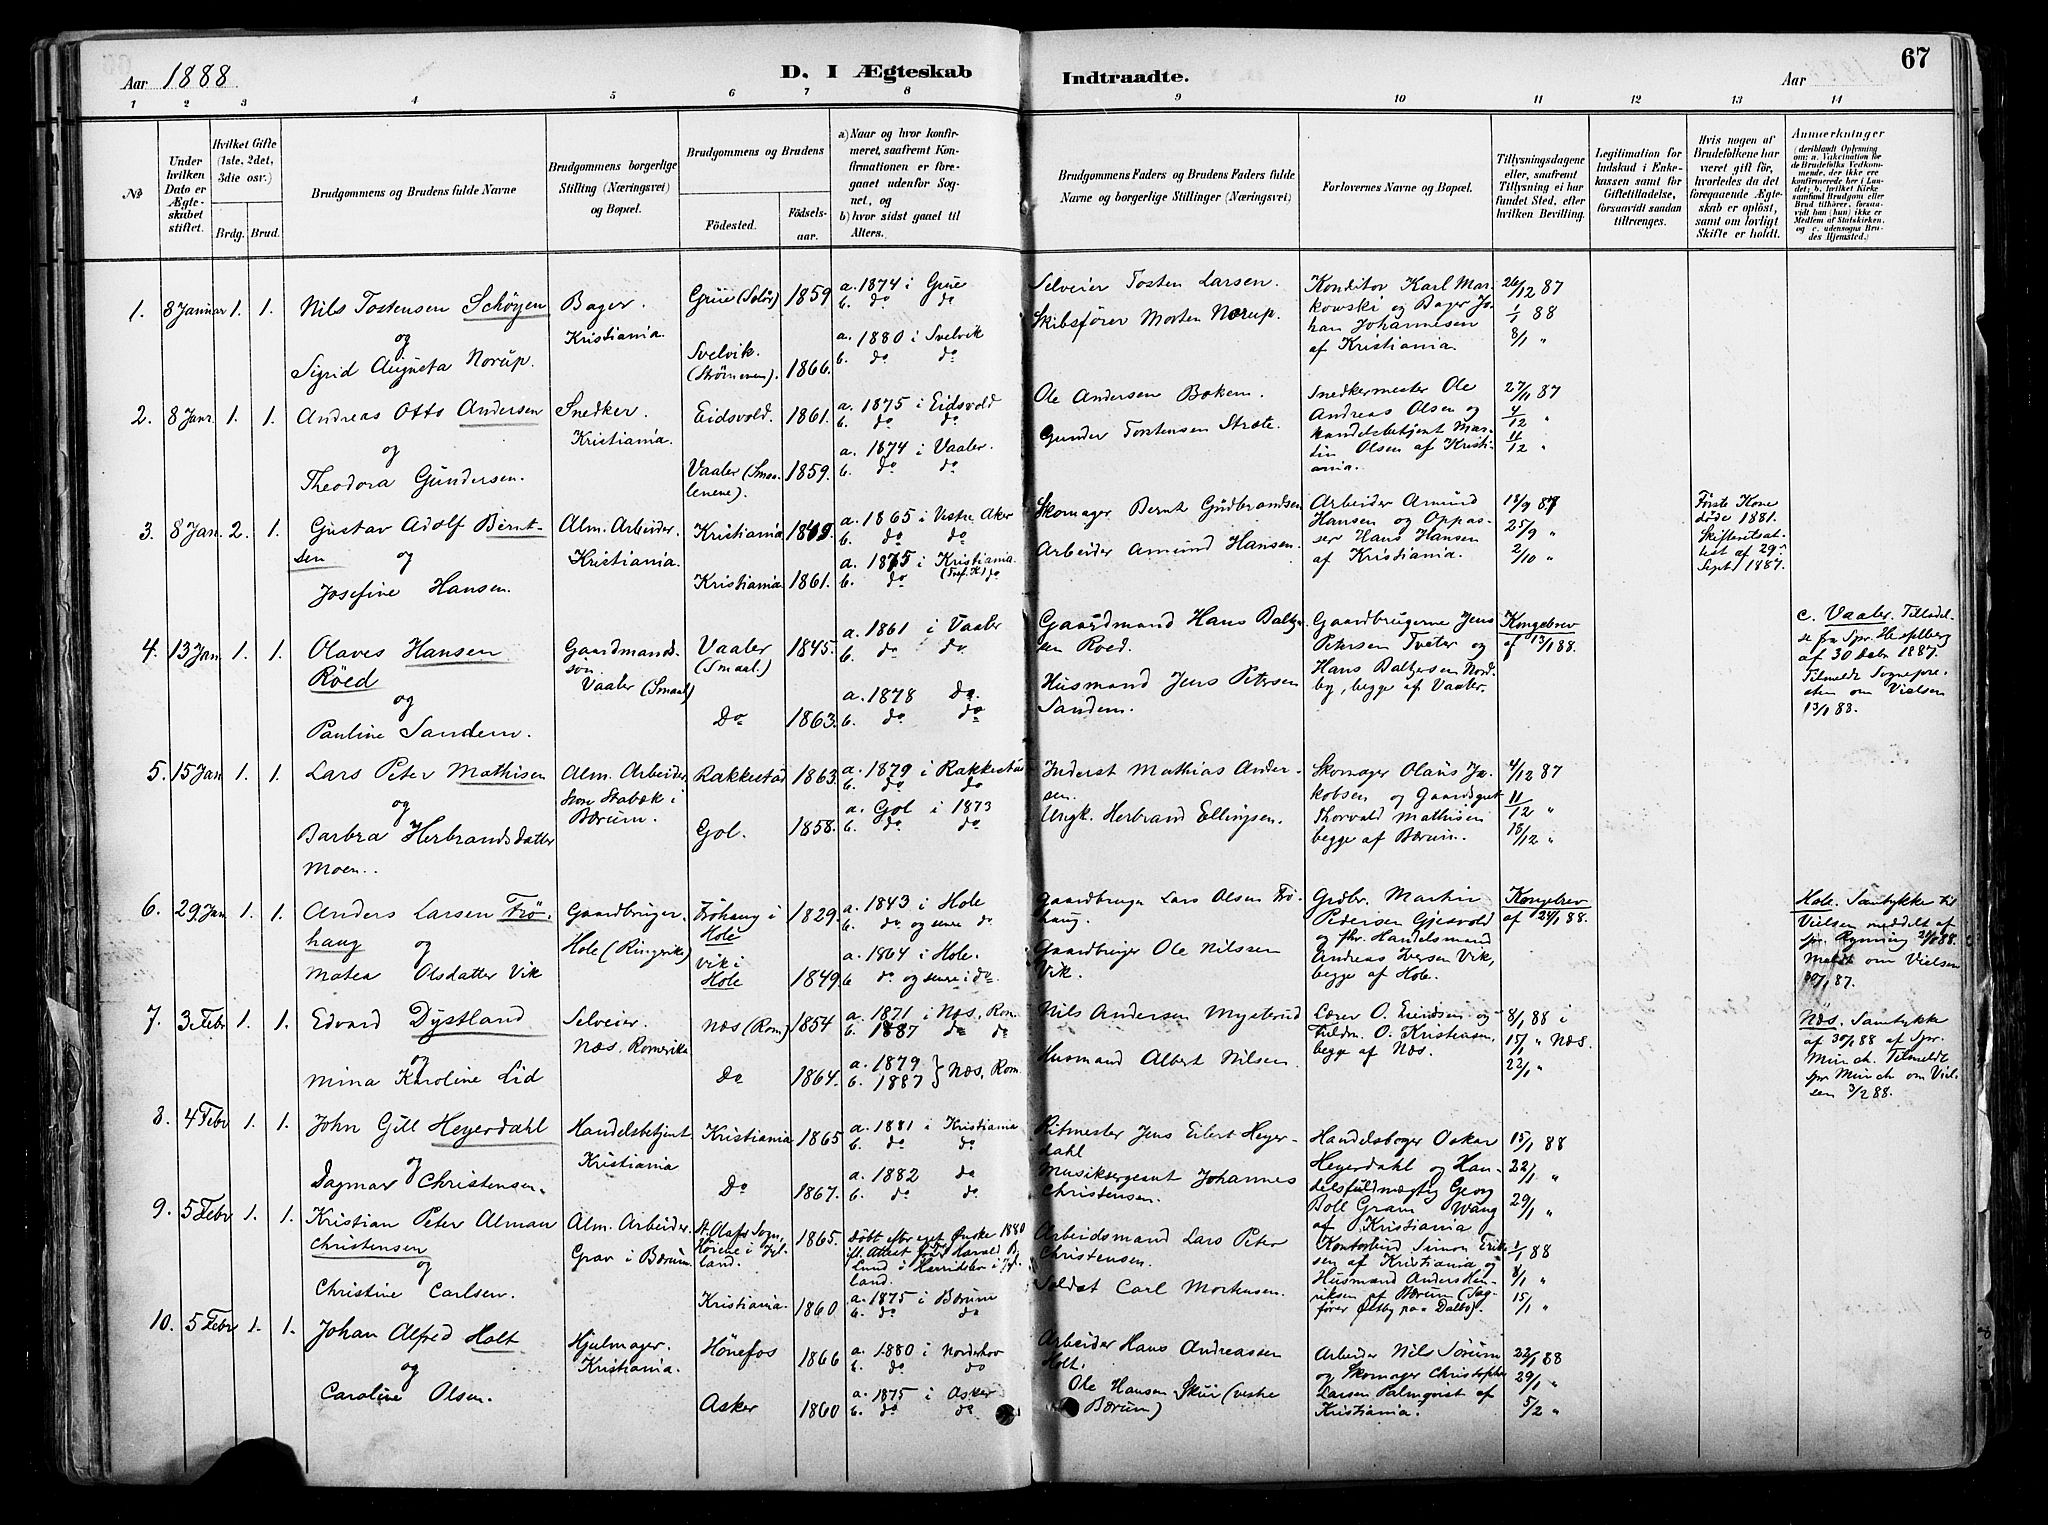 67
Aar 1888
D. I Ægteskab Indtraadte.
Aar
1 2 3 4 5 6 7 8 9 10 11 12 13 14
№
Under hvilken Dato er Ægteskabet stiftet.
Hvilket Gifte (1ste, 2det, 3die osv.)
Brdg. Brud.
Brudgommens og Brudens fulde Navne
Brudgommens borgerlige Stilling (Næringsvei) og Bopæl.
Brudgommens og Brudens
Fødested.
Fødselsaar.
a) Naar og hvor konfirmeret, saafremt Konfirmationen er foregaaet udenfor Sognet, og
b) hvor sidst gaaet til Alters.
Brudgommens Faders og Brudens Faders fulde Navne og borgerlige Stillinger (Næringsvei)
Forlovernes Navne og Bopæl.
Tillysningsdagene eller, saafremt Tillysning ei har fundet Sted, efter hvilken Bevilling.
Legitimation for Indskud i Enkekassen samt for Giftetilladelse, forsaavidt saadan tiltrænges.
Hvis nogen af Brudefolkene har været gift før, hvorledes da det foregaaende Ægteskab er opløst, samt om lovligt Skifte er holdt.
Anmærkninger (deriblandt Oplysning om: a. Vakcination for de Brudefolks Vedkommende, der ikke ere konfirmerede her i Landet; b. hvilket Kirkesamfund Brudgom eller Brud tilhører, forsaavidt han (hun) ikke er Medlem af Statskirken, og c. udensogns Brudes Hjemsted.
1. 8 Januar 1. 1. Nils Tostensen Schøyen
og
Sigrid Augusta Norup.
Bager.
Kristiania.
Grue (Solør) 1859
Svelvik.
(Strømmen). 1866.
a. 1874 i Grue
b. do do
a. 1880 i Svelvik
b. do do
Selveier Tosten Larsen.
Skibsfører Morten Norup.
Konditor Karl Markowski og Bager Johan Johannesen
af Kristiania.
26/12 87
1/1 88
8/1 "
2. 8 Janr. 1. 1. Andreas Otto Andersen
og
Theodora Gundersen.
Snedker.
Kristiania.
Eidsvold. 1861.
Vaaler (Smaalenene). 1859.
a. 1875 i Eidsvold
b. do do
a. 1874 i Vaaler.
b. do do
Ole Andersen Boken.
Gunder Torstensen Stræte.
Snedkermester Ole
Andreas Olsen og
Handelsbetjent Martin Olsen af Kristiania.
27/11 87
4/12 "
11/12 "
3. 8 Jan. 2. 1. Gustav Adolf Berntsen
og
Josefine Hansen.
Alm. Arbeider.
Kristiania.
Kristiania 1849.
Kristiania 1861.
a. 1865 i Vestre Aker
b. do do
a. 1875 i Kristiania
b. do (Tref. K.) do
Skomager Bernt Gudbrandsen
Arbeider Amund Hansen.
Arbeider Amund
Hansen og Oppasser Hans Hansen
af Kristiania.
18/9 87
25/9 "
2/10 "
Første Kone
døde 1881.
Skifteretsattest af 29
Septr 1887.
4. 13 Jan. 1. 1. Olaves Hansen
Röed
og
Pauline Sandem.
Gaardmandssøn
Vaaler (Smaal.)
Vaaler
(Smaal.) 1845.
Do 1863.
a. 1861 i Vaaler
b. do do
a. 1878 do.
b. do do
Gaardmand Hans Baltzersen Roed.
Husmand Jens Petersen
Sandem.
Gaardbrugerne Jens
Petersen Tveter og
Hans Baltzersen Nordby, begge af Vaaler.
Kongebrev
af 13/1 88.
c. Vaaler. Tilladelse fra Spr. Hesselberg
af 30 Debr 1887.
Tilmeldt Sognepresten om Vielsen
13/1 88.
5. 15 Jan 1. 1. Lars Peter Mathisen
og
Barbra Herbrandsdatter
Moen.
Alm. Arbeider
Store Stabæk i
Bærum.
Rakkestad 1863.
Gol. 1858.
a. 1879 i Rakkestad
b. do do
a. Gol i 1873
b. do do
Inderst Mathias Andersen.
Ungk. Herbrand Ellingsen.
Skomager Olaus Jakobsen og Gaardsgut
Thorvald Mathisen
begge af Bærum.
4/12 87
11/12 "
18/12 "
6. 29 Jan 1. 1. Anders Larsen Fröhaug
og
Matea Olsdatter Vik
Gaardbruger.
Hole (Ringerike)
Fröhaug i
Hole 1829.
Vik i
Hole 1849.
a. 1843 i Hole
b. do og senere do
a. 1864 i Hole.
b do og senere i do.
Gaardbruger Lars Olsen Fröhaug.
Gaardbruger Ole Nilssen
Vik.
Grdbr. Martin
Pedersen Gjesvold
og fhv. Handelsmand
Andreas Iversen Vik,
begge af Hole.
Kongebrev
af 24/1 88.
Hole. Samtykke til
Vielsen meddelt af
spr. Ryning 21/1 88.
Meldt om Vielsen
30/1 87.
7. 3 Febr 1. 1. Edvard Dystland
og
Mina Karoline Lid
Selveier.
Næs, Romerike
Næs (Rom) 1854
Do 1864.
a. 1871 i Næs, Rom.
b. 1887 do do
a. 1879
b. 1887 } Næs, Rom.
Nils Andersen Mystrud
Husmand Albert Nilsen.
Lærer O. Ericksen og
Fuldm. O. Kristensen,
begge af Næs.
8/1 88 i
15/1 " Næs.
22/1 "
Næs. Samtykke
af 30/1 88 af Spr.
Münch. Tilmeldt
spr. Münch om Vielsen 3/2 88.
8. 4 Febr 1. 1. John Gill Heyerdahl
og
Dagmar Christensen.
Handelsbetjent
Kristiania
Kristiania 1865
Do 1867.
a. 1881 i Kristiania
b. do do
a. 1882 do
b. do do
Ritmester Jens Eilert Heyerdahl
Musiksergeant Johannes
Christensen.
Handelsborger Oskar
Heyerdahl og Handelsfuldmægtig Georg
Boll Gram Wang
af Kristiania
15/1 88
22/1 "
29/1 "
9. 5 Febr 1. 1. Kristian Peter Alman
Christensen
og
Christine Carlsen.
Alm. Arbeider.
Grav i Bærum.
St. Olafs Sogn,
Höiene i Jylland. 1865.
Kristiania. 1860
Døbt efter eget Ønske 1880
Lund i Harridslev i Jylland.
a. 1875 i Bærum
b. do do
Arbeidsmand Lars Peter
Christensen.
Soldat Carl Mortensen.
Kontorbud Simon Eriksen af Kristiania og
Husmand Anders Henriksen af Bærum (Sagfører Østby paa Dalbo).
1/1 88
8/1 "
15/1 "
10. 5 Febr 1. 1. Johan Alfred Holt
og
Caroline Olsen.
Hjulmager.
Kristiania.
Hönefos 1866
Asker 1860
a. 1880 i Norderhov
b. do do
a. 1875 i Asker
b. do do
Arbeider Hans Andreassen
Holt.
Ole Hansen Skui (vestre
Bærum)
Arbeider Nils Sörum
og Skomager Christopher
Larsen Palmqvist af
Kristiania.
22/1 88
29/1 "
5/2 "